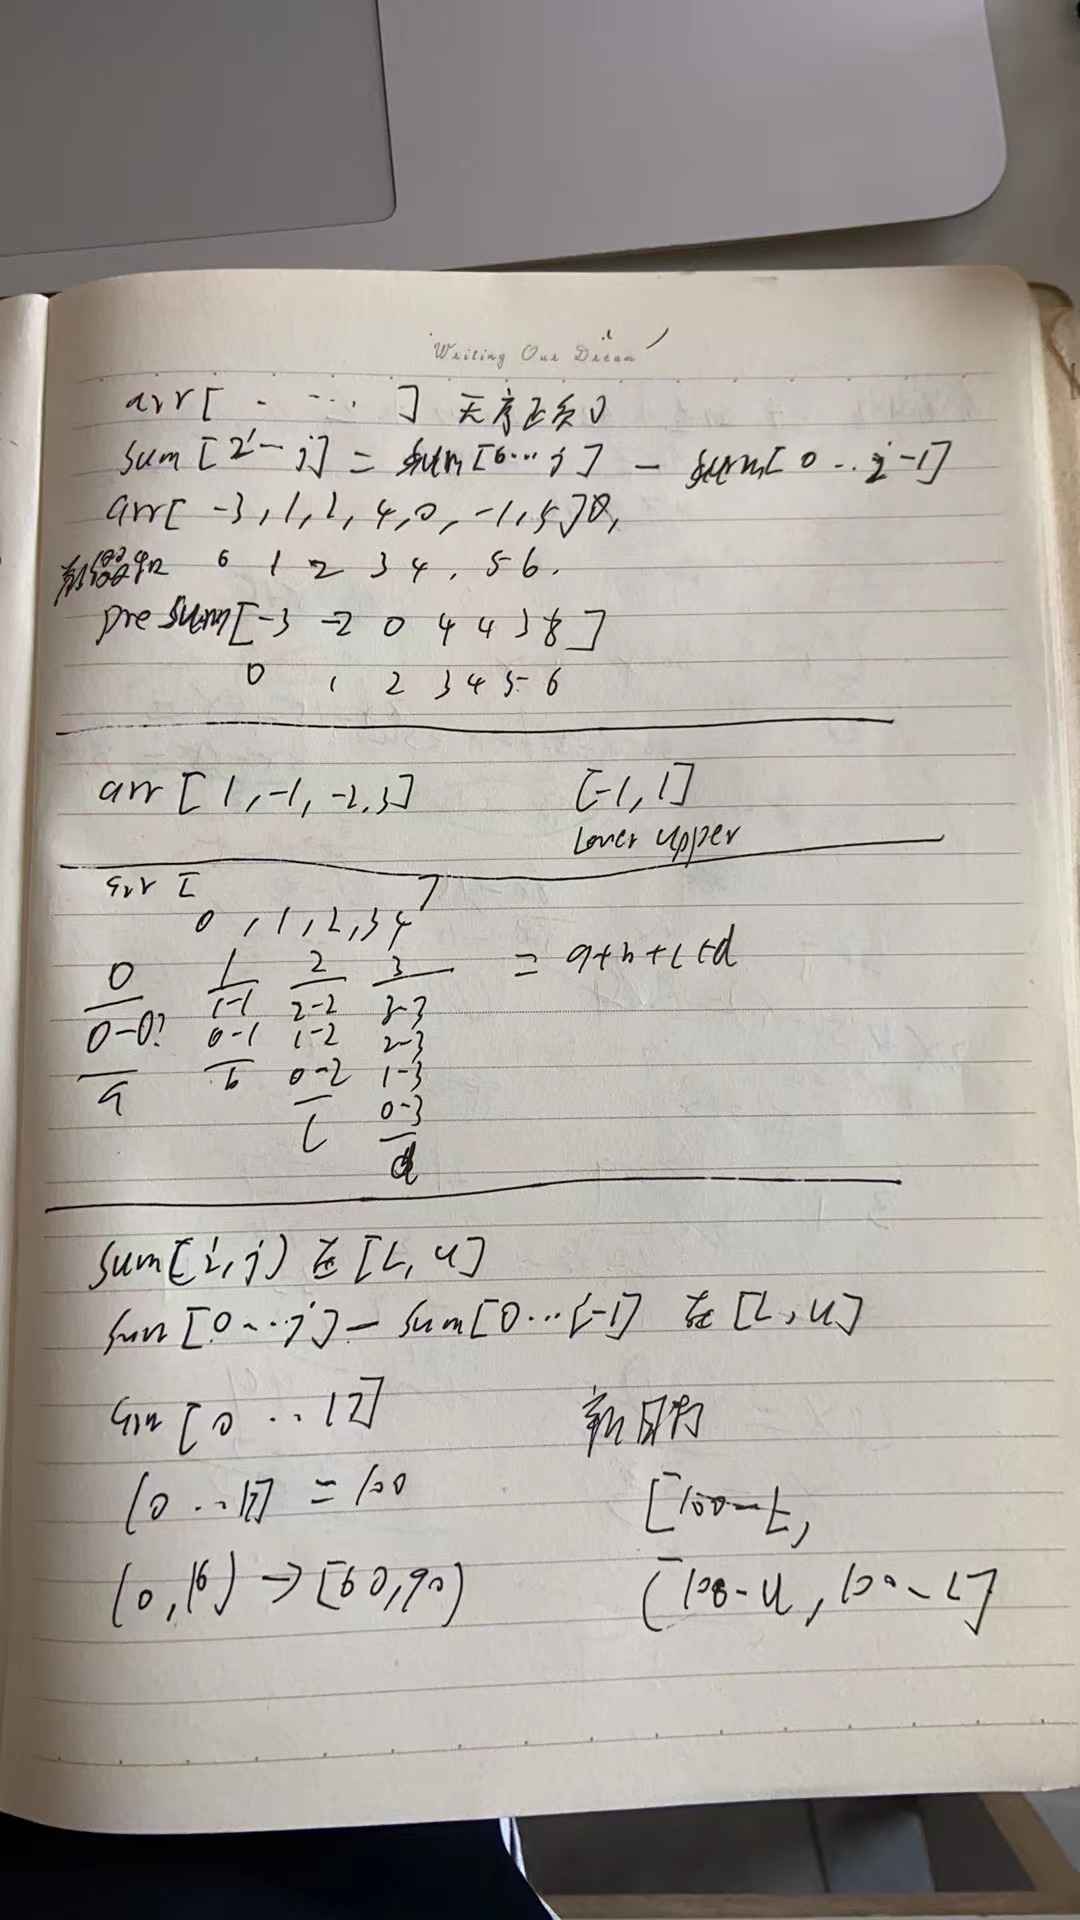 Writing Our Dream
arr[ . ... ] 无序正负0
sum[i-j] = sum[0...j] - sum[0..i-1]
arr[ -3,1,2,4,0,-1,5]
0 1 2 3 4. 5 6.
pre sum[-3 -2 0 4 4 3 8]
0 1 2 3 4 5 6
arr [1,-1,-2,3] [-1,1]
Lower upper
arr [ ]
0,1,2,3 4
0 1 2 3 = a+b+c+d
0-0? 1-1 2-2 3-3
0-1 1-2 2-3
a b 0-2 1-3
c 0-3
d
sum[i,j) 在[L,u]
sum[0...j] - sum[0...i-1] 在[L,u]
arr[0..17] 新目标
(0..17] = 100 [100-L,
(0,16) → [60,90) [100-u,100-L]